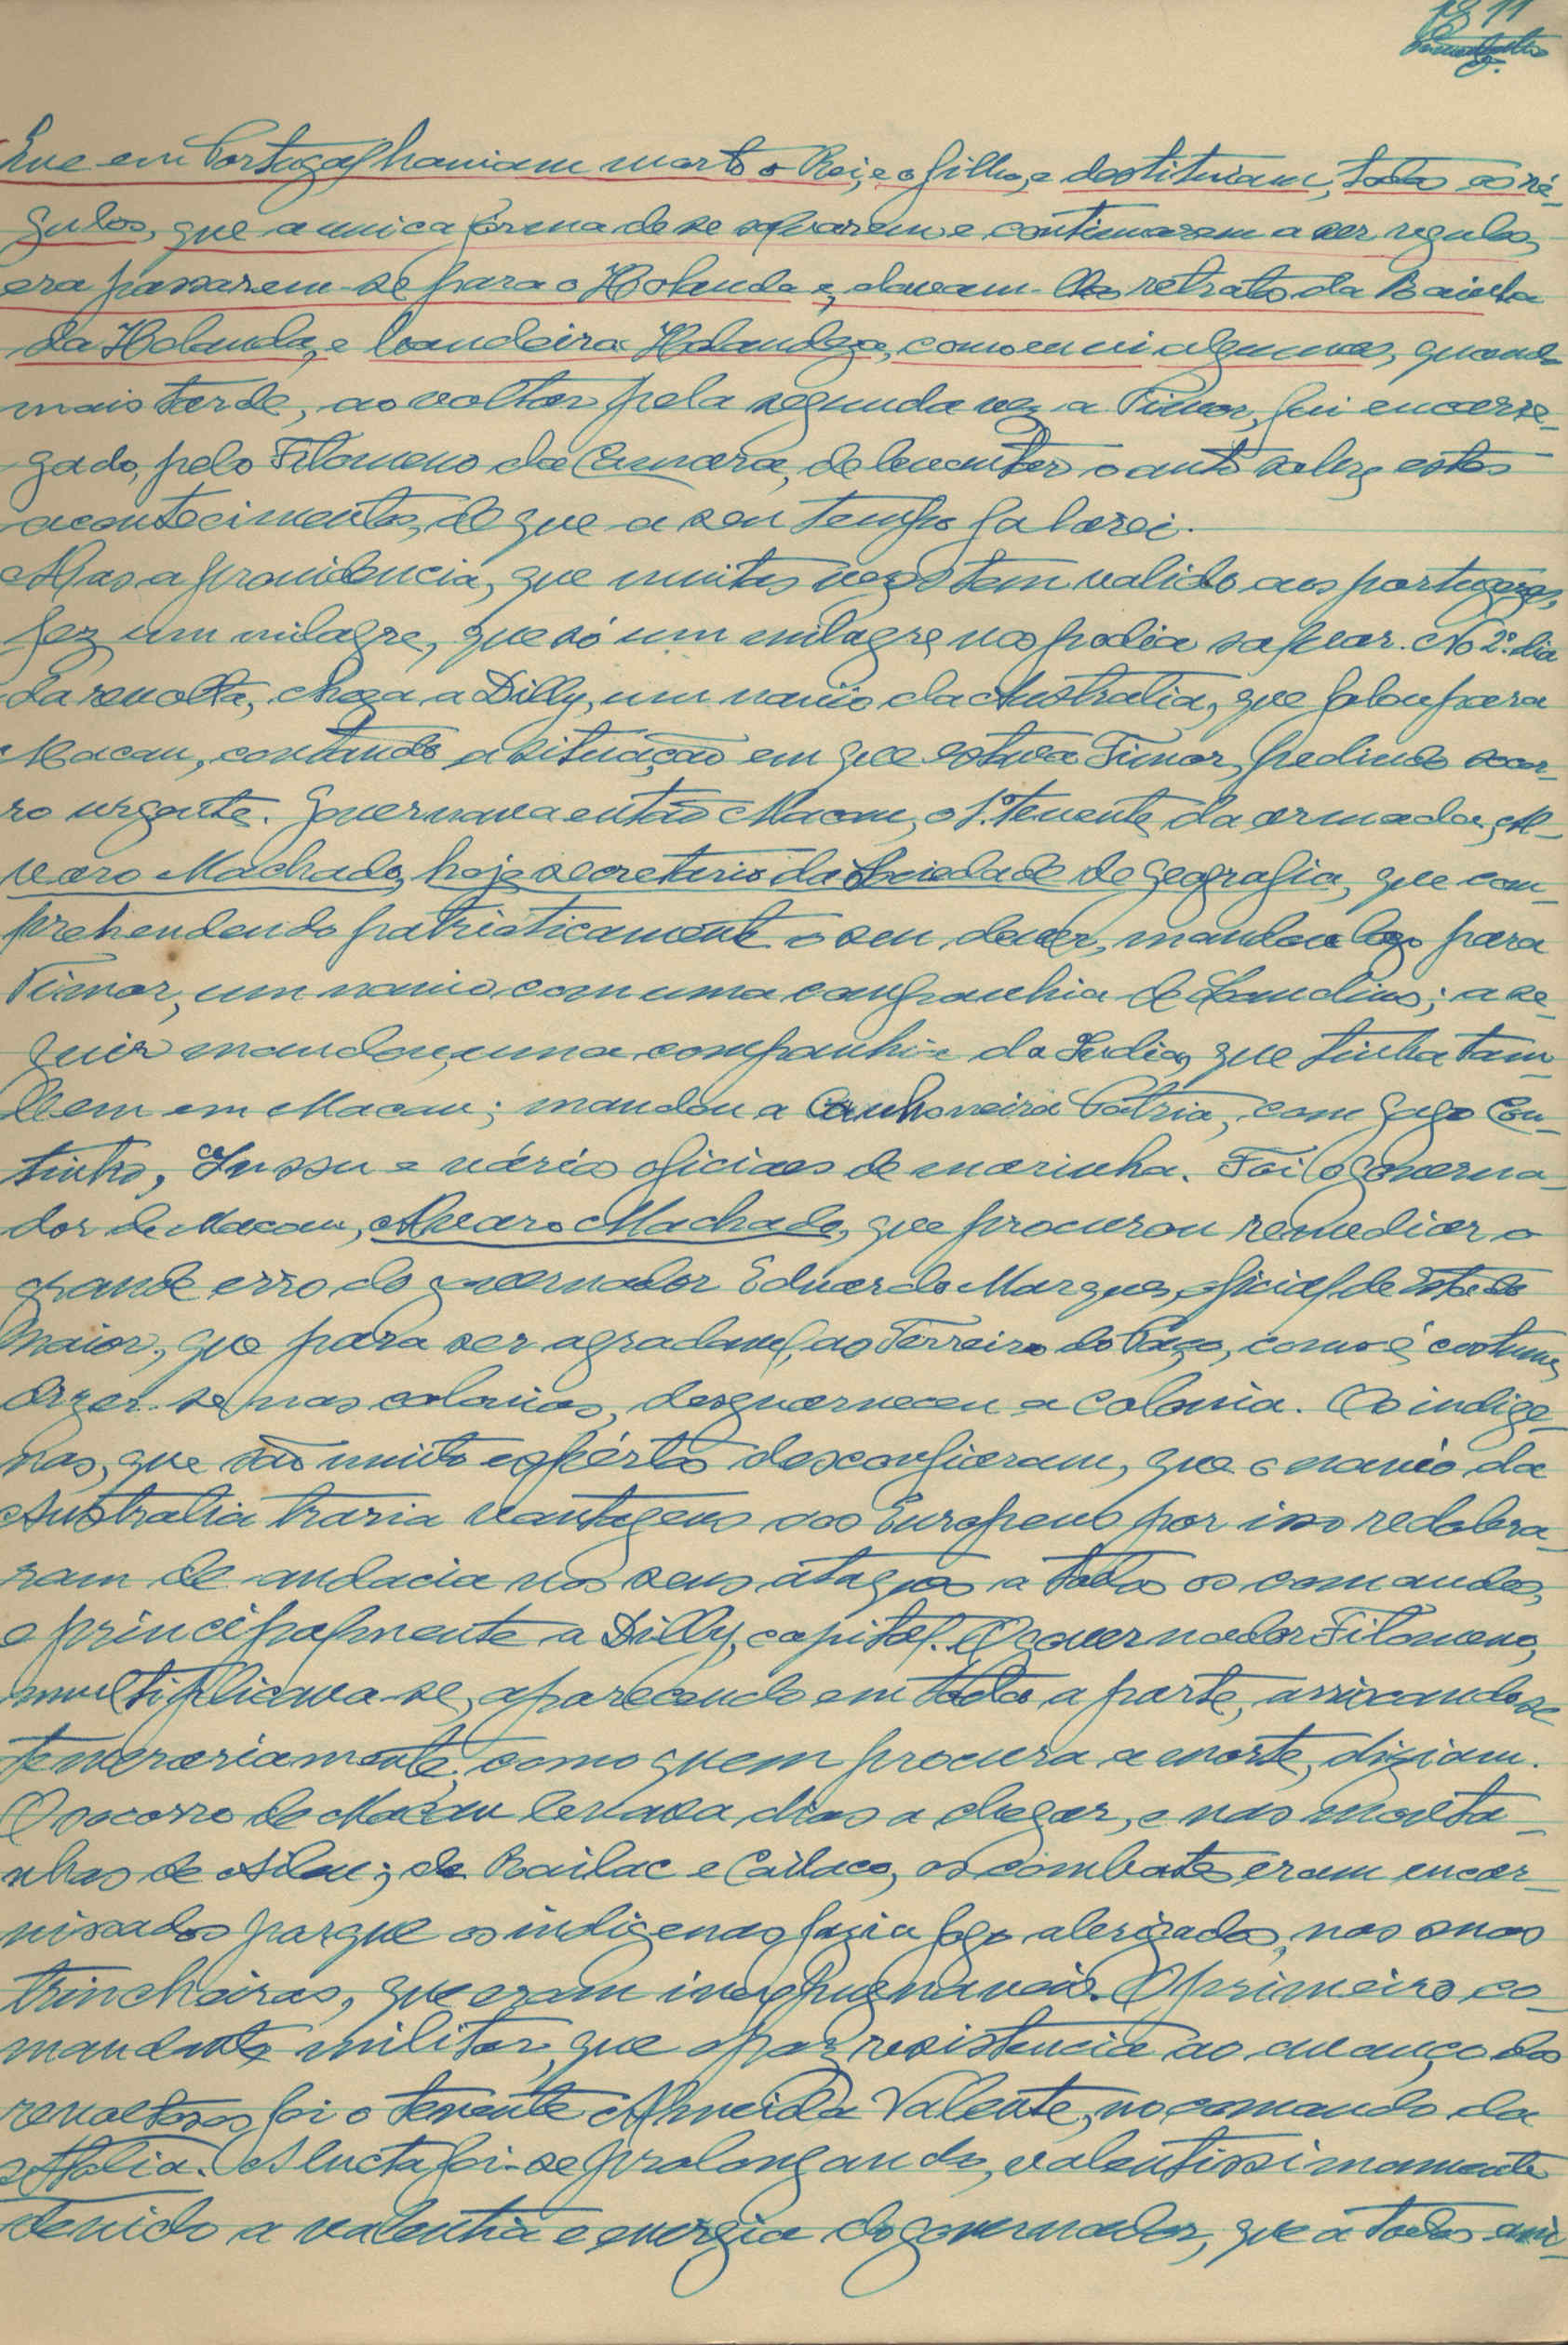 11
Que em Portugal haviam morto o Rei, e o filho, e destituiam, todos os ré-
gulos, que a unica forma de se salvarem e continuarem a ser regulos,
era passarem-se para o Holanda e, davam-lhes retrato da Rainha
da Holanda, e bandeira Holandeza, como eu vi algumas, quando
mais tarde, ao voltar pela segunda vez a Timor, fui encarre-
gado, pelo Filomeno da Camara, de levantar o auto sobre estes
acontecimentos, de que a seu tempo falarei.
Mas a providencia, que muitas vezes tem valido aos portuguezes,
fez um milagre, que só um milagre nos podia salvar. No 2º dia
da revolta, chega a Dilly, um navio da Australia, que falou para
Macau, contando a situação em que estava Timor, pedindo socor-
ro urgente. Governava então Macau, o 1º tenente da armada, Al-
varo Machado, hoje secretario da Sociedade de Geografia, que com-
prehendendo patrioticamente o seu dever, mandou logo para
Timor, um navio com uma companhia de Landins; a se-
guir mandou, uma companhia da India, que tinha tam-
bem em Macau; mandou a Canhoneira Patria, com Gago Cou-
tinho, Jussu e vários oficiaes de marinha. Foi o governa-
dor de Macau, Alvaro Machado, que procurou remediar o
grande erro do governador Eduardo Marques, oficial de Estado
Maior, que para ser agradavel, ao Terreiro do Paço, como é costume
dizer-se nas colonias, desguarneceu a colonia. Os indige-
nas, que são muito espértos desconfiaram, que o navio da
Australia traria vantagens aos Europeus por isso redobra-
ram de audacia nos seus ataques a todos os comandos,
e principalmente a Dilly, capital. O governador Filomeno,
multiplicava-se, aparecendo em toda a parte, arriscando-se
temerariamente, como quem procura a morte, diziam.
O socorro de Macau levava dias a chegar, e nas monta-
nhas de Aileu; de Railac e Cailaco, os combates eram encar-
nissados porque os indigenas fazia fogo abrigados, nas suas
trincheiras, que eram inexpugnaveis. O primeiro co-
mandante militar, que opoz resistencia ao avanço dos
revoltosos foi o tenente Almeida Valente, no comando da
Hatolia. A lucta foi-se prolongando, valentissimamente
devido a valentia e energia do governador, que a todos ani-